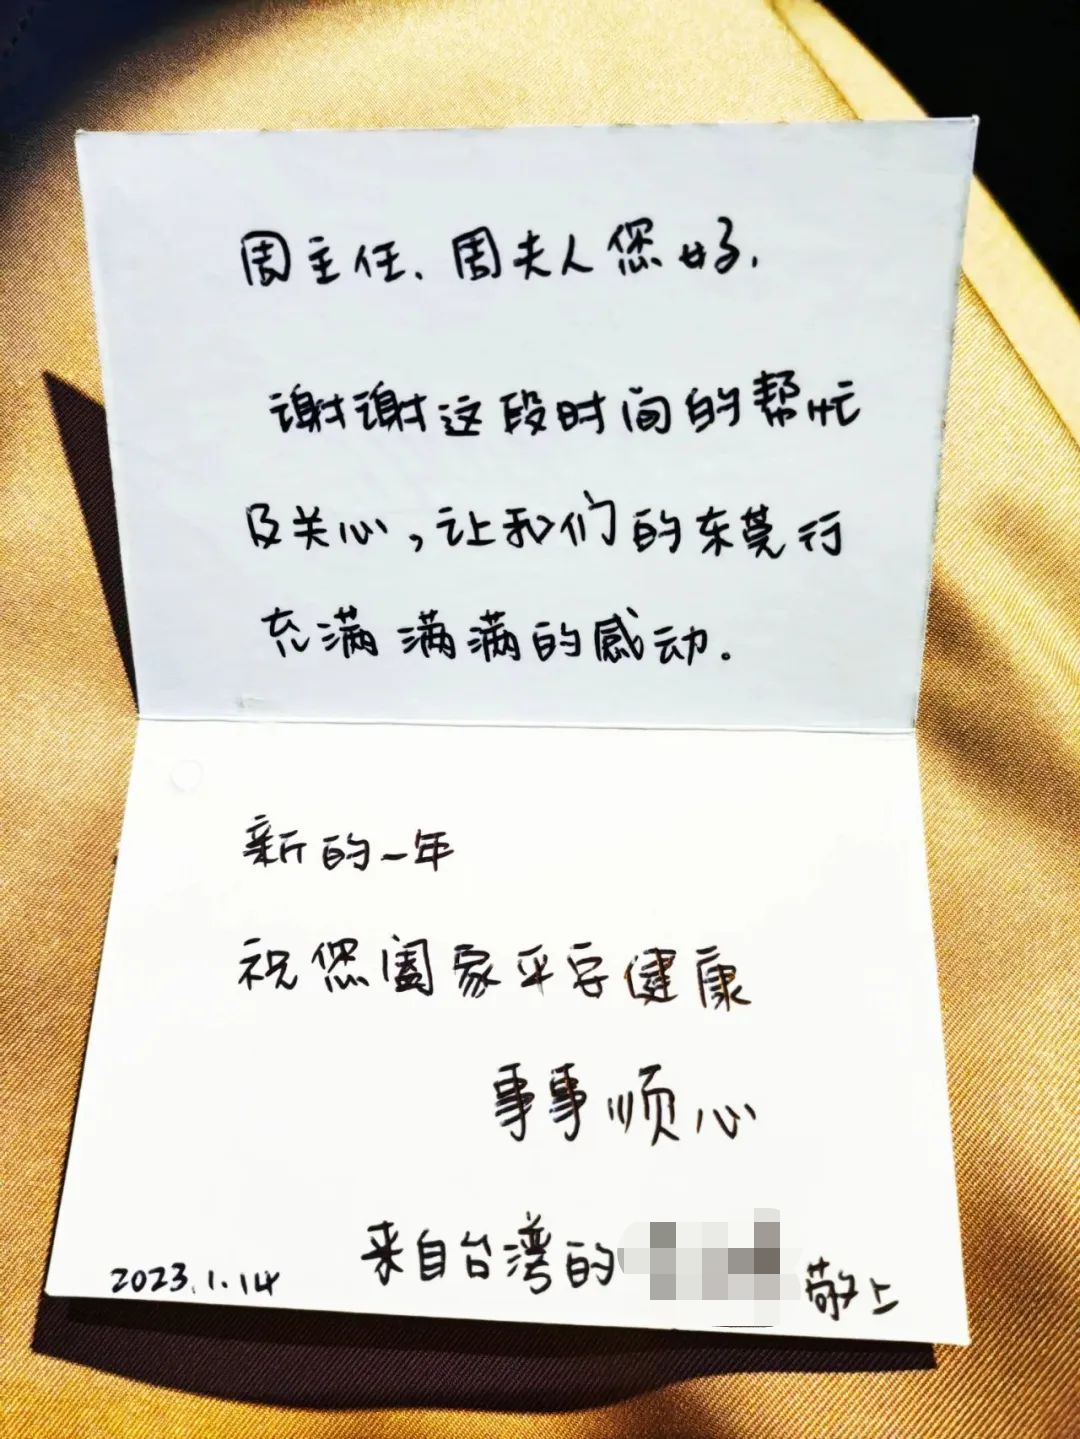 周主任、周夫人您好,
谢谢这段时间的帮忙
及关心,让我们的东莞行
充满满满的感动.
新的一年
祝您阖家平安健康
事事顺心
来自台湾的 敬上
2023.1.14